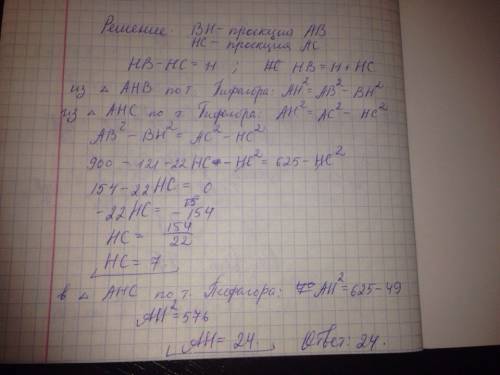 Решение: BH - проекция AB
HC - проекция AC
HB - HC = 11 ; HB = 11 + HC
из △ AHB по т. Пифагора: AH² = AB² - BH²
из △ AHC по т. Пифагора: AH² = AC² - HC²
AB² - BH² = AC² - HC²
900 - 121 - 22HC - HC² = 625 - HC²
154 - 22HC = 0
-22HC = -154
HC = 154/22
HC = 7
в △ AHC по т. Пифагора: AH² = 625 - 49
AH² = 576
AH = 24. Ответ: 24.